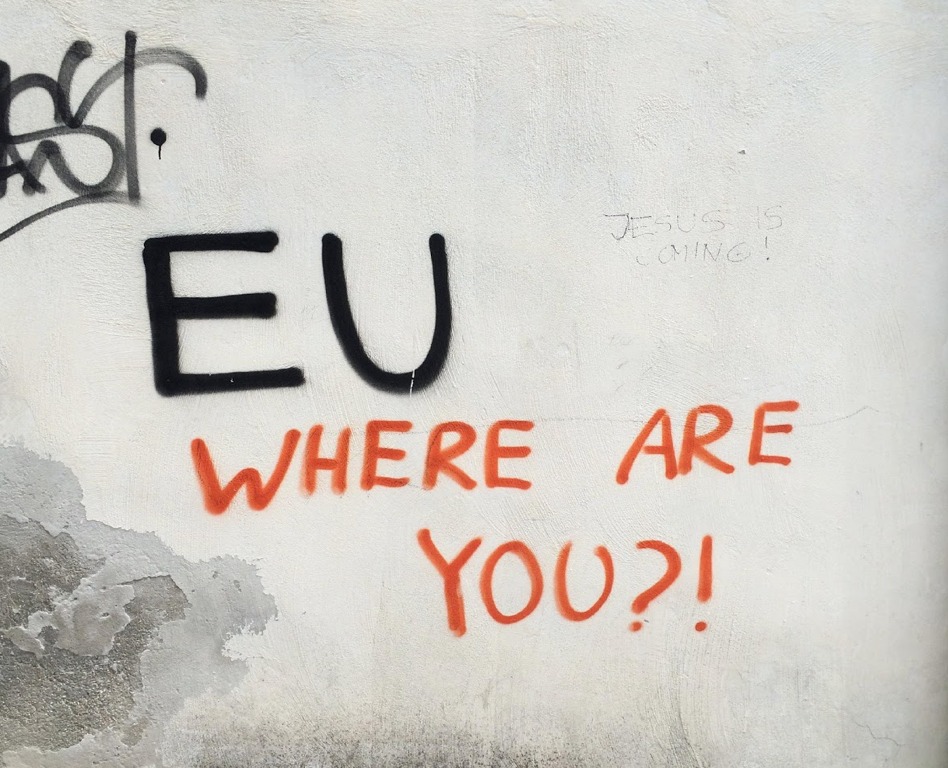 EU
JESUS IS
COMING!
WHERE ARE
YOU?!